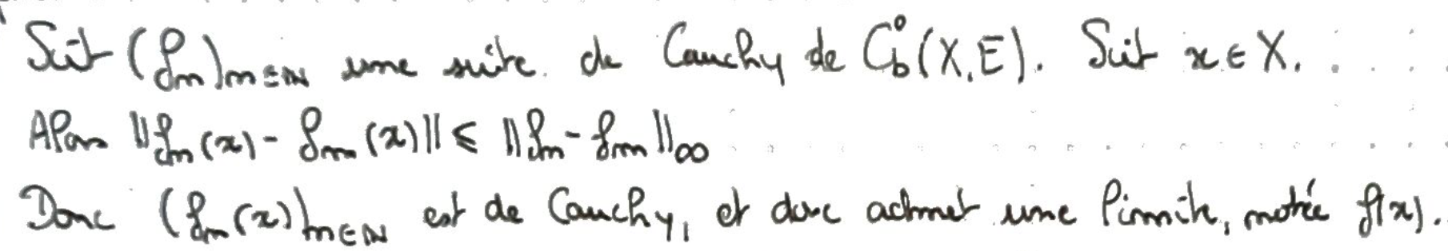 Soit (fn)n∈ℕ une suite de Cauchy de C⁰b(X,E). Soit x ∈ X.
Alors ||fn(x) - fm(x)|| ≤ ||fn - fm||∞
Donc (fn(x))n∈ℕ est de Cauchy, et donc admet une limite, notée f(x).